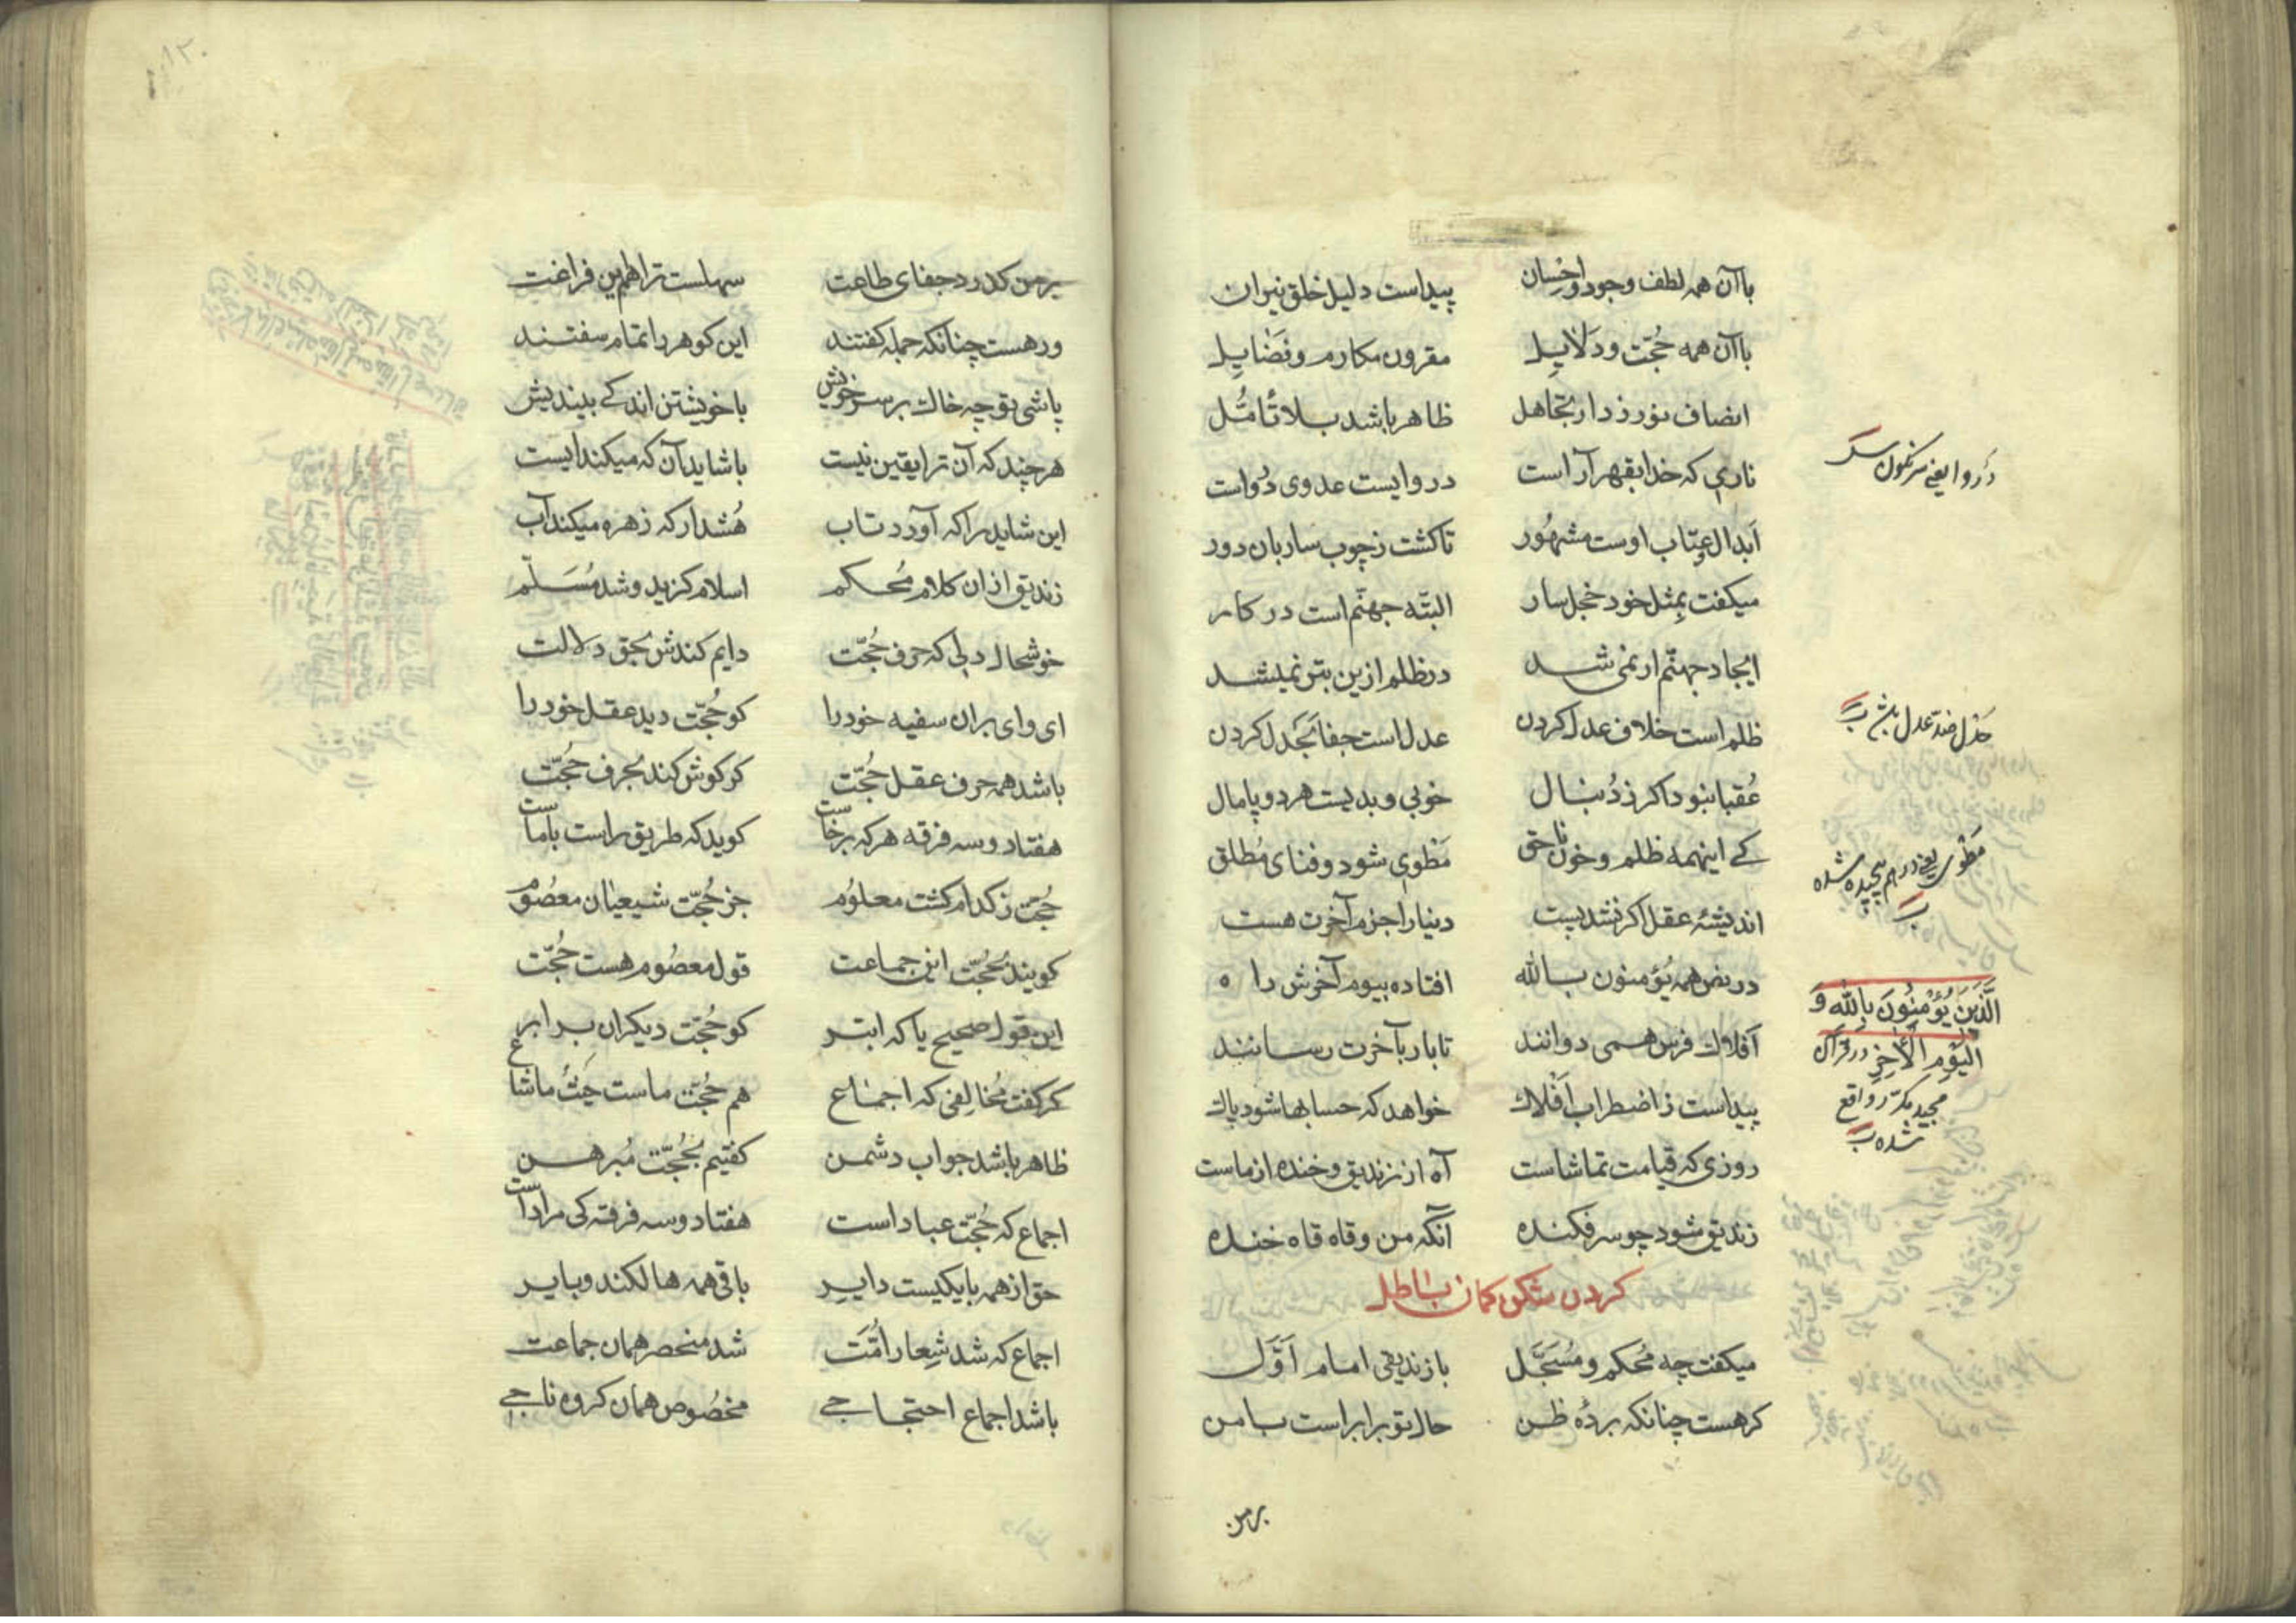 باآن همه لطف وجود واحسان پیداست دلیل خلق نیران
باآن همه حُجّت ودَلایِل مقرون مکارم وفضایِل
انصاف نورزد ار تجاهل ظاهر باشد بلا تأمُّل
ناری که خدا بقهر آراست در وایست عدوی
اَبدال عِتاب اوست مشهُور تا کشت زچوب ساربان دور
میکفت بِمثل خود خجل سار البتّه جهنّم است در کار
ایجاد جهنّم ار نمی شد در ظلم ازین بتر نمیشد
ظلم است خلاف عدل کردن عدل است جفا بَحَدل کردن
عُقبا نبود اکر ز دُنبال خوبی وبدیست هر دو پامال
کے اینهمه ظلم وخون ناحق مَطوی شود وفنای مُطلق
اندیشهٔ عقل اکر نشد پست دنیا را جزم آخرت هست
در نص همه یُؤمنون بالله افتاده بیوم آخرش راه
اَفلاك فرس همی دوانند تا بار بآخرت رسانند
پیداست ز اضطراب اَفلاك خواهد که حسابها شود پاك
روزی که قیامت تماشاست آه از زندیق وخنده از ماست
زندیق شود چو سرفکنده آنکه من وقاه قاه خنده
کردن ستکون کمان باطل
میکفت چه مُحکم ومُسَجَّل با زندیقی امام اَوّل
کر هست چنانکه بردهٔ ظن حال تو برابر است با من
دَروا یعنی سرنکون
حَدل ضدّ عدل
مَطوی یعنی درهم پیچیده شده
الَّذینَ یُؤْمِنُونَ بِاللهِ وَ
الیَومِ الآخِرِ در قرآن
مجید مکرّر واقع
شده
بر من
بر من کذرد جفای طاعت سهلست ترا همین فراغت
ور هست چنانکه جمله کفتند این کوهر را تمام سفتند
پاشی تو چه خاك بر سر خویش با خویشتن اندکے بیندیش
هر چند که آن ترا یقین نیست با شاید آن که میکند ایست
این شاید را که آورد تاب هُشدار که زهره میکند آب
زندیق ازان کلام مُحکم اسلام کزید وشد مُسَلّم
خوشحال دلی که حرف حُجّت دایم کندش بحق دلالت
ای وای بران سفیه خود را کو حُجّت دید عقل خود را
باشد همه حرف عقل حُجّت کو کوش کند بحرف حُجّت
هفتاد وسه فرقه هر که برخاست کوید که طریق راست باماست
حُجّت ز کدام کشت معلوُم جز حُجّت شیعیان معصُوم
کویند بحُجّت این جماعت قول معصُوم هست حُجّت
این قول صحیح یا که ابتر کو حُجّت دیکران برابر
کر کفت مُخالفی که اجماع هم حُجّت ماست حَیثُ ماشاع
ظاهر باشد جواب دشمن کفتیم بحُجّت مُبرهن
اجماع که حُجّت عباد است هفتاد وسه فرقه کی مراد است
حق از همه با یکیست دایِر باقی همه هالکند وبایر
اجماع که شد شِعار اُمّت شد منحصر همان جماعت
باشد اجماع احتجاجے مخصُوص همان کروه ناجے